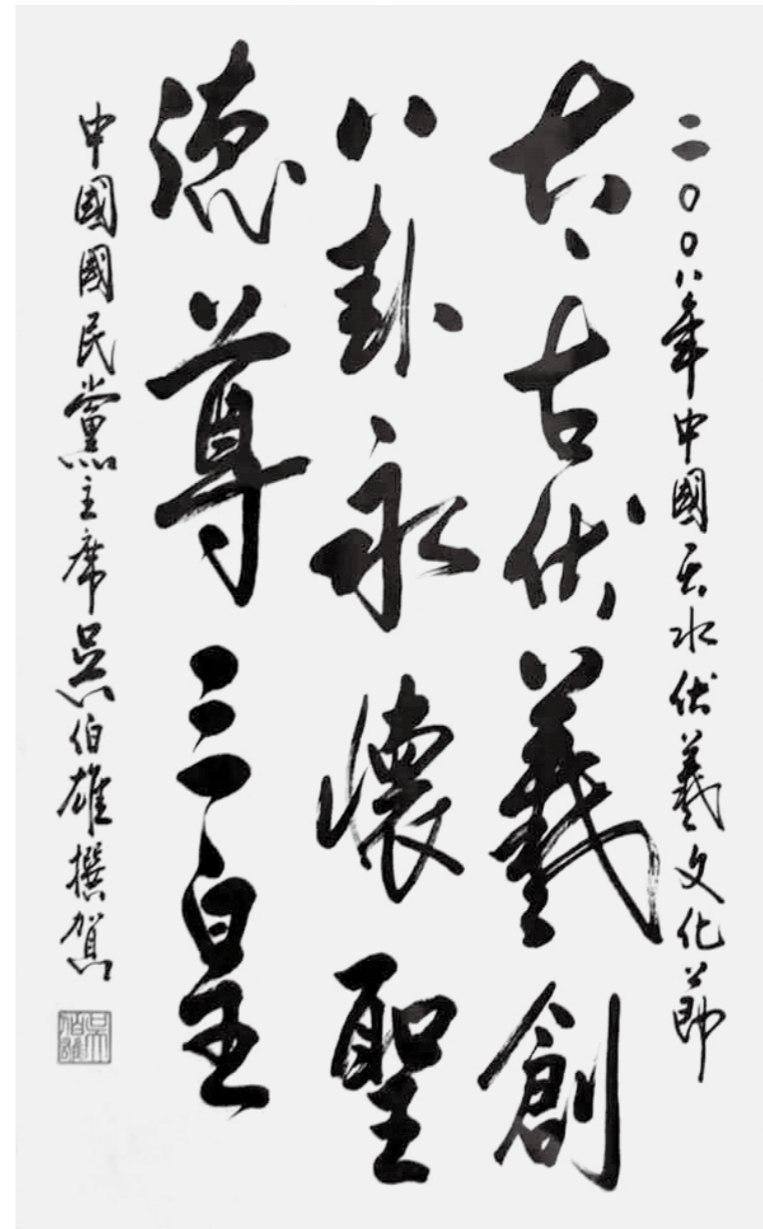 二〇〇八年中國天水伏羲文化節
太古伏羲創
八卦永懷聖
德尊三皇
中國國民黨主席吳伯雄撰賀
吳伯雄